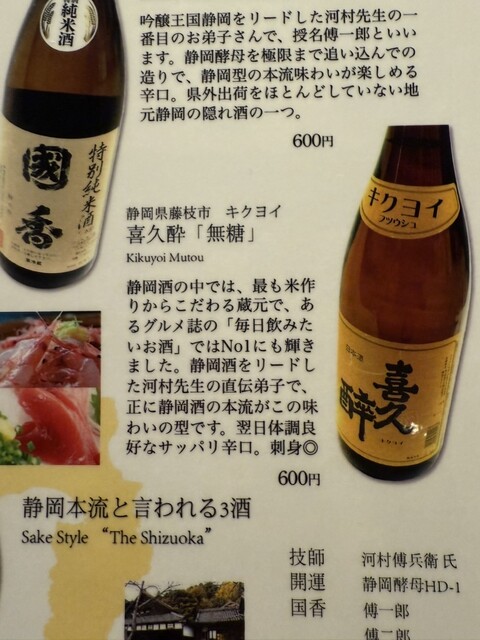 純米酒
吟醸王国静岡をリードした河村先生の一
番目のお弟子さんで、授名傅一郎といい
ます。静岡酵母を極限まで追い込んでの
造りで、静岡型の本流味わいが楽しめる
辛口。県外出荷をほとんどしていない地
元静岡の隠れ酒の一つ。
600円
國香
特別純米酒
静岡県藤枝市　キクヨイ
喜久酔「無糖」
Kikuyoi Mutou
静岡酒の中では、最も米作
りからこだわる蔵元で、あ
るグルメ誌の「毎日飲みた
いお酒」ではNo1にも輝き
ました。静岡酒をリードし
た河村先生の直伝弟子で、
正に静岡酒の本流がこの味
わいの型です。翌日体調良
好なサッパリ辛口。刺身◎
600円
キクヨイ
フツウシュ
喜久酔
キクヨイ
静岡本流と言われる3酒
Sake Style “The Shizuoka”
技師　河村傅兵衛 氏
開運　静岡酵母HD-1
国香　傅一郎
傅二郎